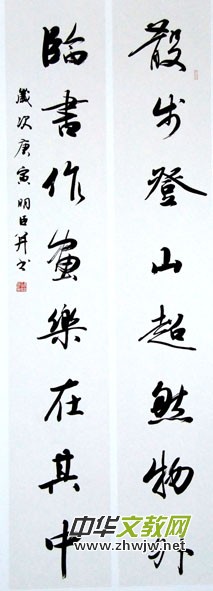 散步登山超然物外
臨書作畫樂在其中
歲次庚寅明臣并书
中华文教网
www.zhwjw.net